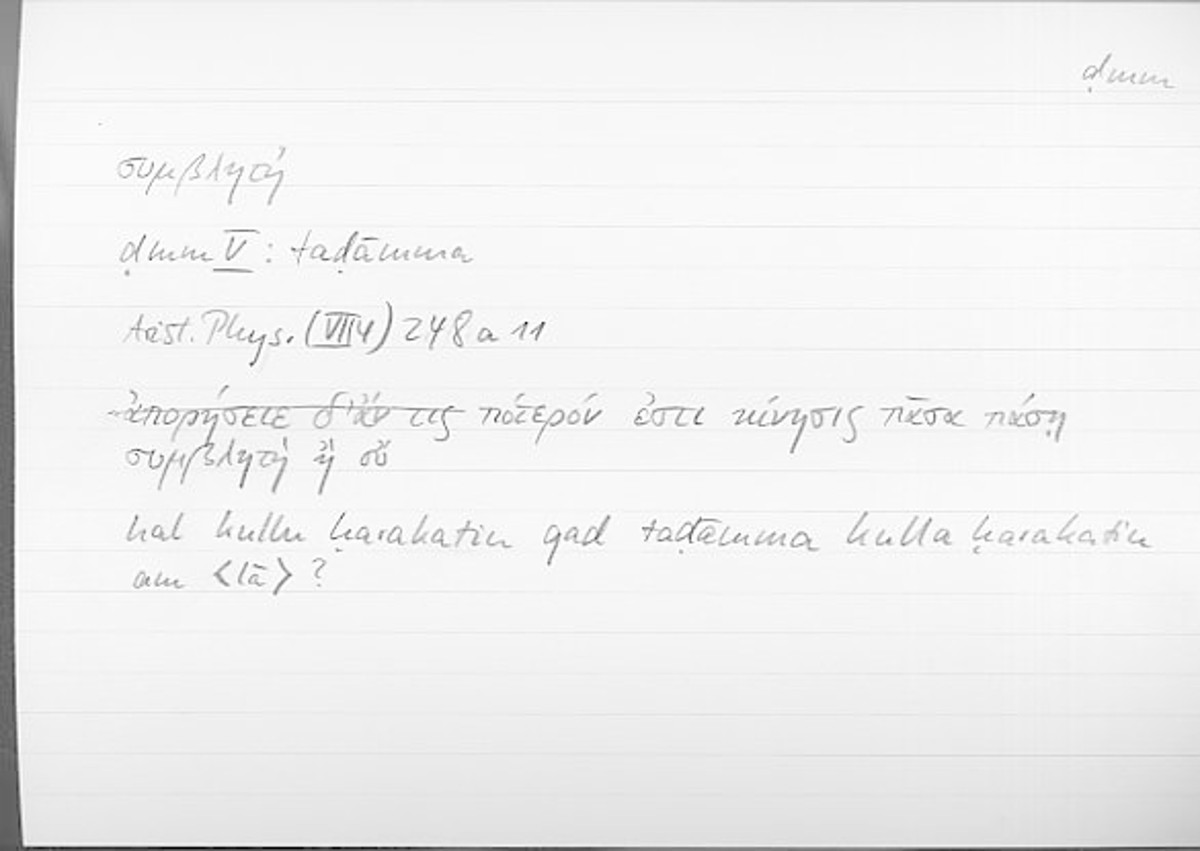 ḍmm
συμβλητή
ḍmm V : taḍāmma
Arist. Phys. (VII 4) 248 a 11
ἀπορήσειε δ'ἄν τις πότερόν ἐστι κίνησις πᾶσα πάσῃ
συμβλητὴ ἢ οὔ
hal kullu ḥarakatin qad taḍāmma kulla ḥarakatin
am <lā> ?